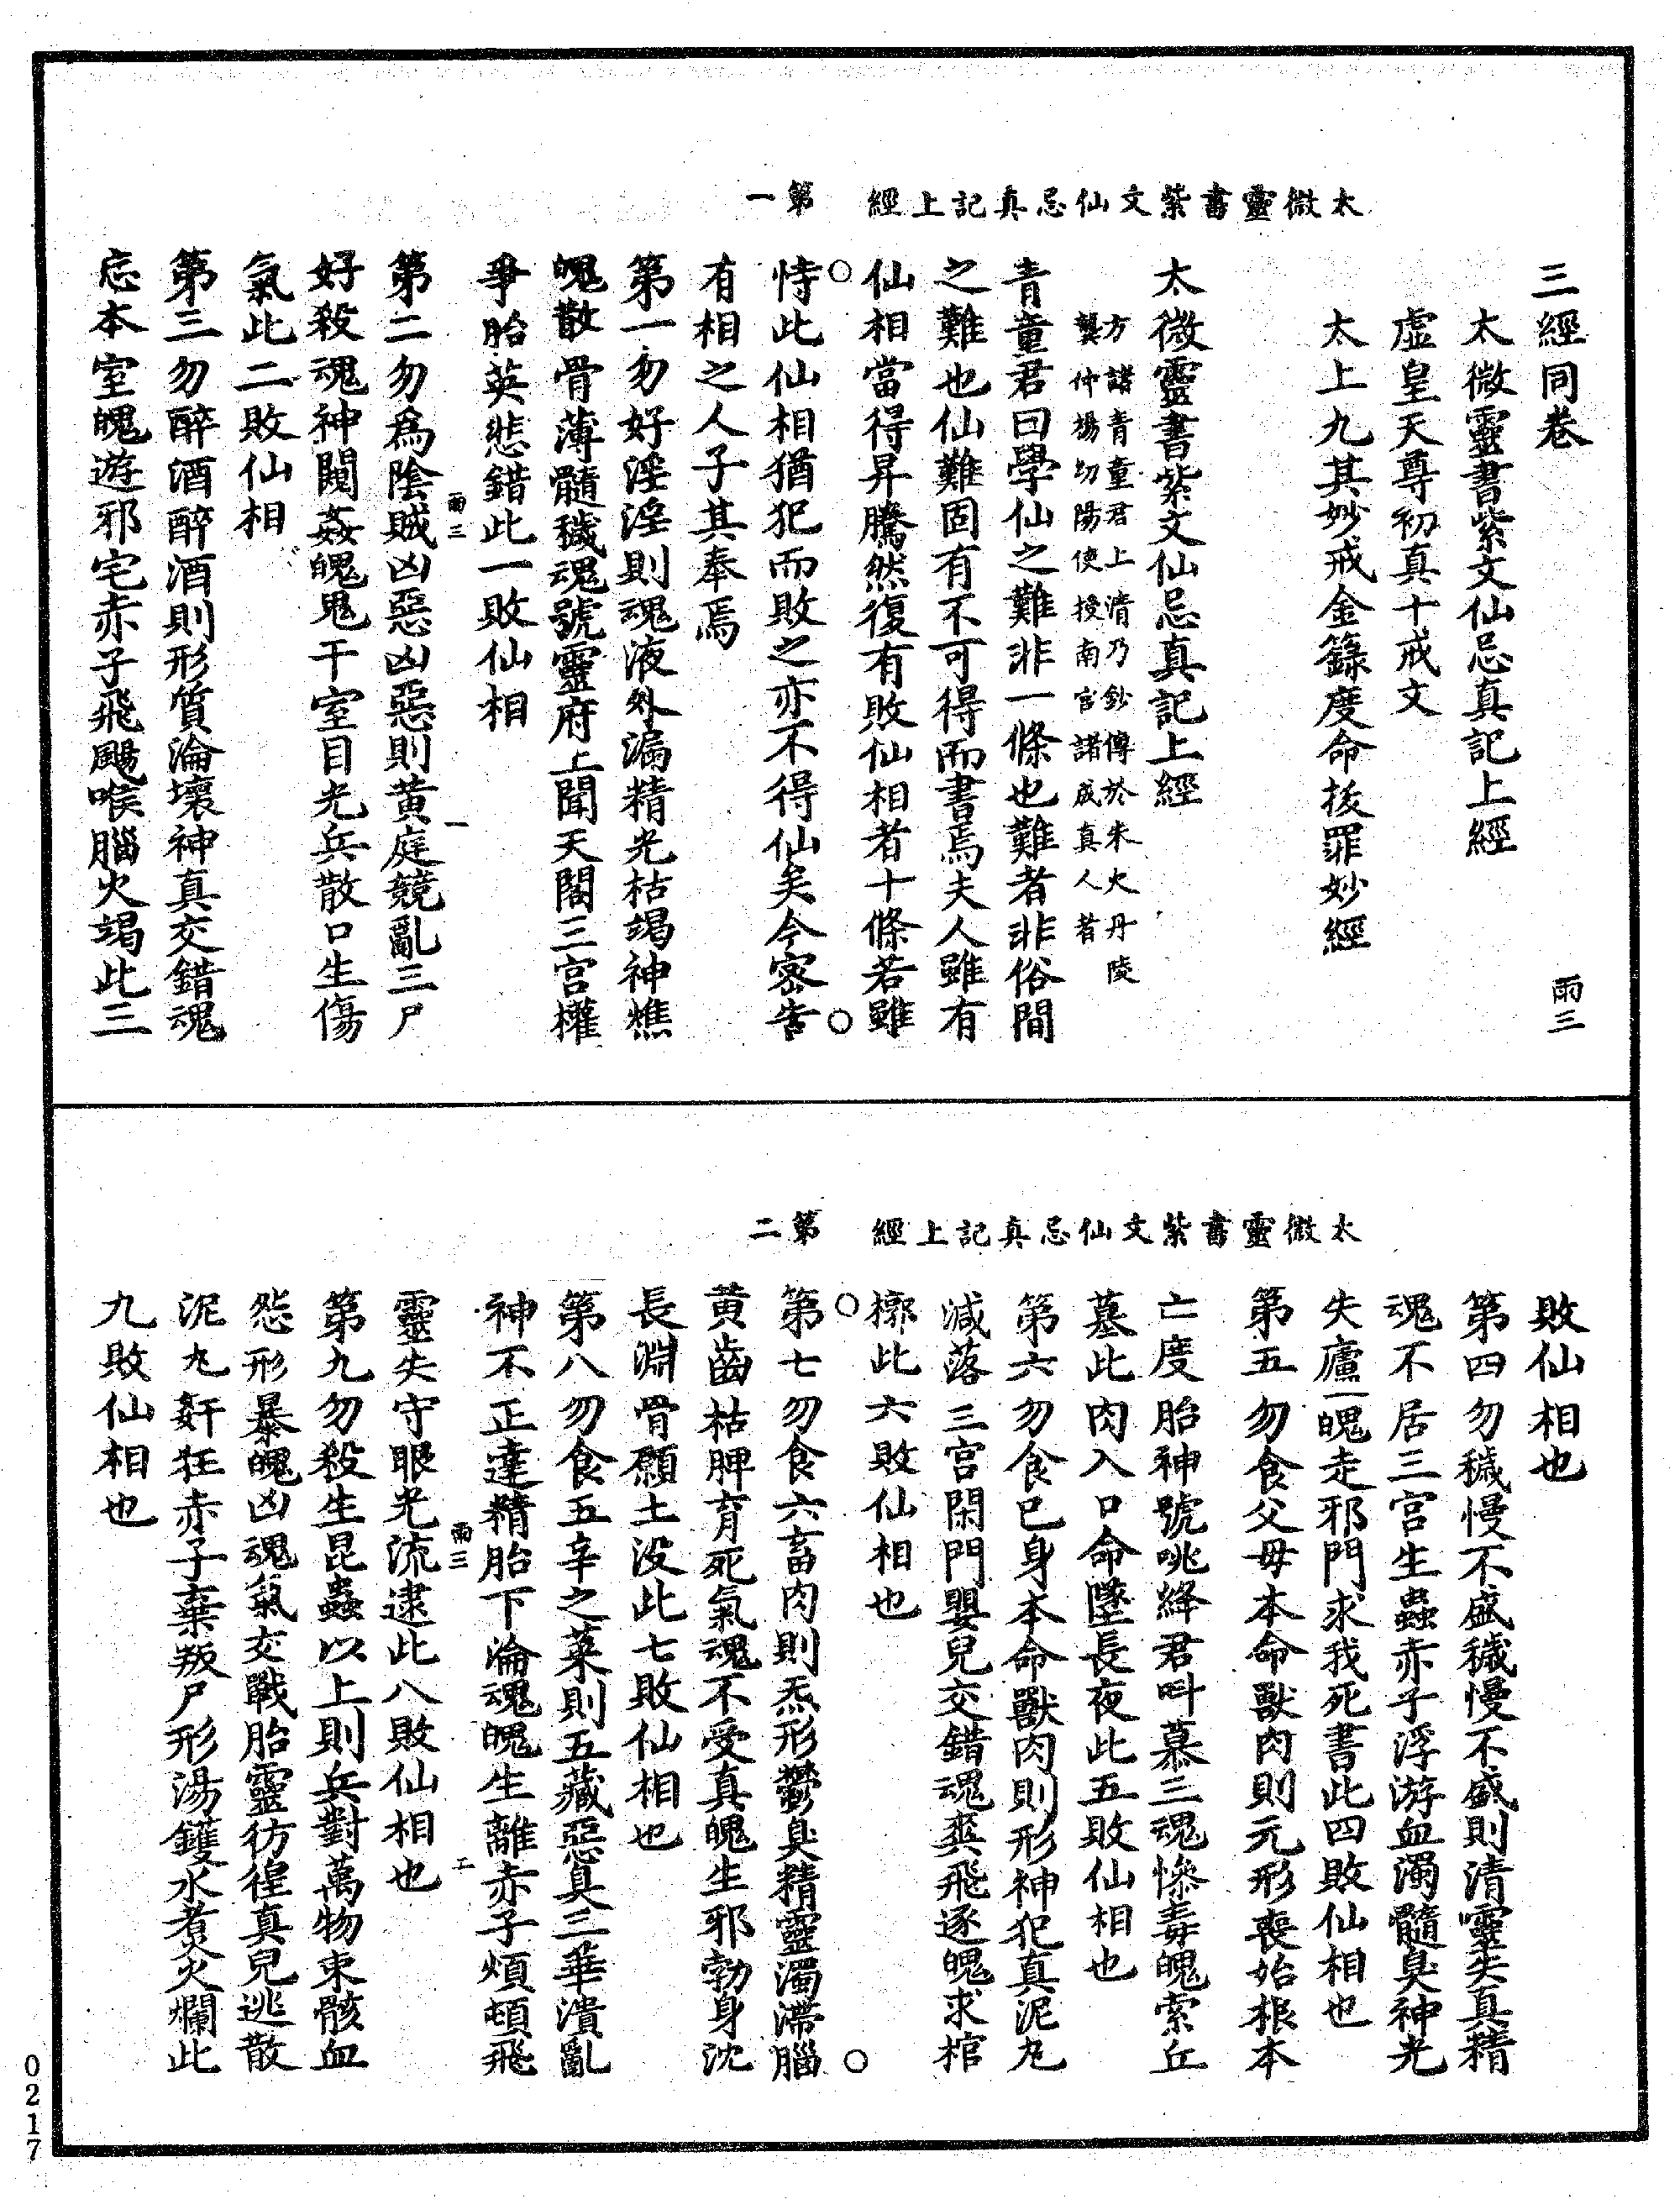 太微靈書紫文仙忌真記上經　第一
三經同卷　雨三
太微靈書紫文仙忌真記上經
虛皇天尊初真十戒文
太上九真妙戒金籙度命拔罪妙經
太微靈書紫文仙忌真記上經
方諸青童君上清乃鈔傳於朱火丹陵
龔仲陽幼陽使授南宮諸成真人者
青童君曰學仙之難非一條也難者非俗間
之難也仙難固有不可得而書焉夫人雖有
仙相當得昇騰然復有敗仙相者十條若雖
恃此仙相猶犯而敗之亦不得仙矣今密告
有相之人子其奉焉
第一勿好淫淫則魂液外漏精光枯竭神燋
魄散骨薄髓穢魂號靈府上聞天閣三宮權
爭胎英悲錯此一敗仙相
雨三　一
第二勿爲陰賊凶惡凶惡則黃庭競亂三尸
好殺魂神鬩姦魄鬼干室目光兵散口生傷
氣此二敗仙相
第三勿醉酒醉酒則形質淪壞神真交錯魂
忘本室魄遊邪宅赤子飛颺喉腦火竭此三
太微靈書紫文仙忌真記上經　第二
敗仙相也
第四勿穢慢不盛穢慢不盛則清靈失真精
魂不居三宮生蟲赤子浮游血濁髓臭神光
失廬一魄走邪門求我死書此四敗仙相也
第五勿食父母本命獸肉則元形喪始根本
亡度胎神號咷絳君叫慕三魂慘毒魄索丘
墓此肉入口命墜長夜此五敗仙相也
第六勿食已身本命獸肉則形神犯真泥丸
減落三宮閑門嬰兒交錯魂爽飛逐魄求棺
槨此六敗仙相也
第七勿食六畜肉則炁形鬱臭精靈濁滯腦
黃齒枯脾育死氣魂不受真魄生邪勃身沈
長淵骨願土沒此七敗仙相也
第八勿食五辛之菜則五藏惡臭三華潰亂
神不正達精胎下淪魂魄生離赤子煩頓飛
雨三　二
靈失守眼光流逮此八敗仙相也
第九勿殺生昆蟲以上則兵對萬物束骸血
怨形暴魄凶魂氣交戰胎靈彷徨真兒逃散
泥丸奸狂赤子棄叛尸形湯鑊水煮火爛此
九敗仙相也
0217